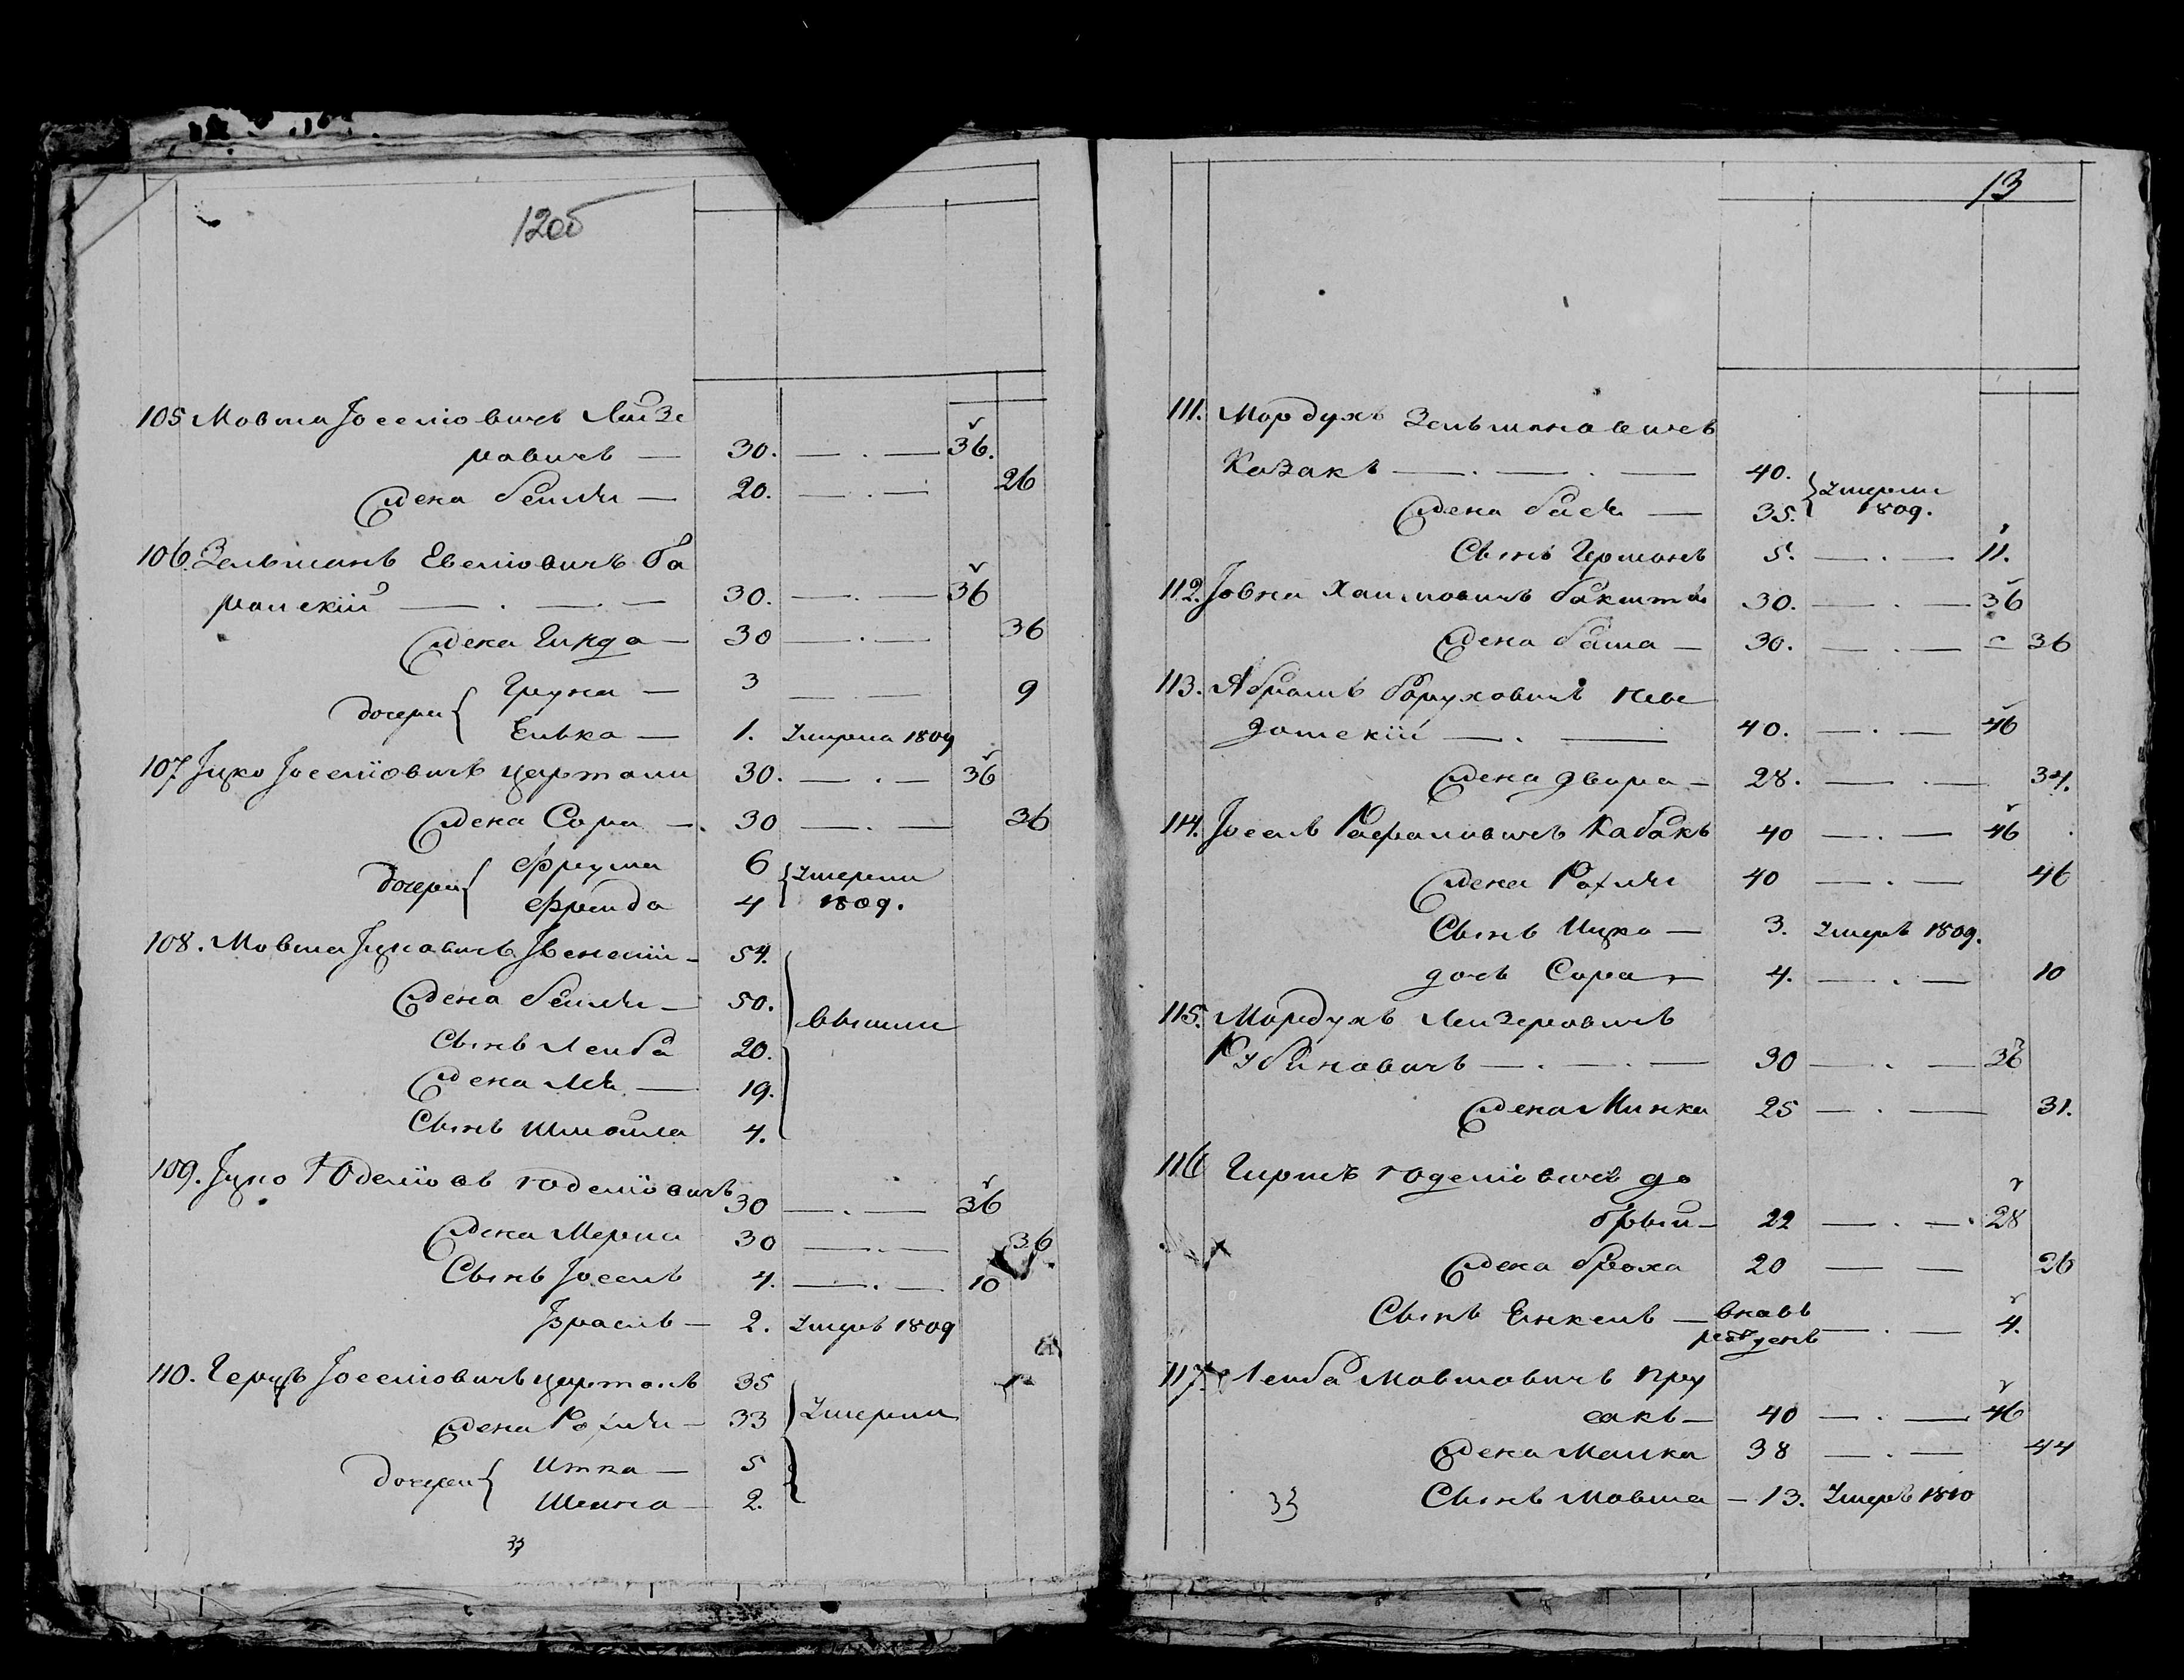 12об
105 Мовша Іоселіовичъ Лайзе
ровичъ — 30. — . — 36.
Жена Бейля — 20. — . — 26
106. Зельманъ Евеліовичъ Ба
ранскій — . — . — 30. — . — 36
Жена Гинда — 30 — . — 36
дочери { Груна — 3 — . — 9
Елька — 1. Умерла 1809
107. Іцко Іоселіовичъ 30. — . — 36
Жена Сора — . 30 — . — 36
дочери { Фрума 6 { Умерли
Фрейда 4 1809.
108. Мовша Іцковичъ — 54.
Жена Бейля — 50.
вышли
Сынъ Лейба 20.
Жена Лея — 19.
Сынъ Шмойла 4.
109. Іцко Юделіовъ Юделіовичъ 30 — . — 36
Жена Мерка 30 — . — 36
Сынъ Іосель 4. — . — 10
Израель — 2. Умеръ 1809
110. Герцъ Іоселіовичъ 35
Жена Рохля — 33 } Умерли
дочери { Итка — 5
Шейна — 2.
33
13
111. Мордухъ Зельмановичъ
Казакъ — . — . — 40.
} Умерли
Жена Бася — 35. 1809.
Сынъ Германъ 5. — . — 11.
112. Іовна Хаимовичъ 30. — . — 36
Жена Баша — 30. — . — 36
113. Абрамъ Боруховичъ
— . — 40. — . — 46
Жена Двора — 28. — . — 34.
114. Іосель Рафаловичъ Кабакъ 40 — . — 46
Жена Рохля 40 — . — 46
Сынъ Ицко — 3. Умеръ 1809.
дочь Сора — 4. — . — 10
115. Мордухъ Лейзеровичъ
Рубиновичъ — . — . — 30 — . — 36
Жена Минка 25 — . — 31.
116 Гиршъ Юделіовичъ До
брый — 22 — . — . 28
Жена Броха 20 — — 26
Сынъ Енкель — вновь
рожденъ — . — 4.
117. Лейба Мовшовичъ Пру
сакъ — 40 — . — 46
Жена Малка 38 — . — 44
33 Сынъ Мовша — 13. Умеръ 1810